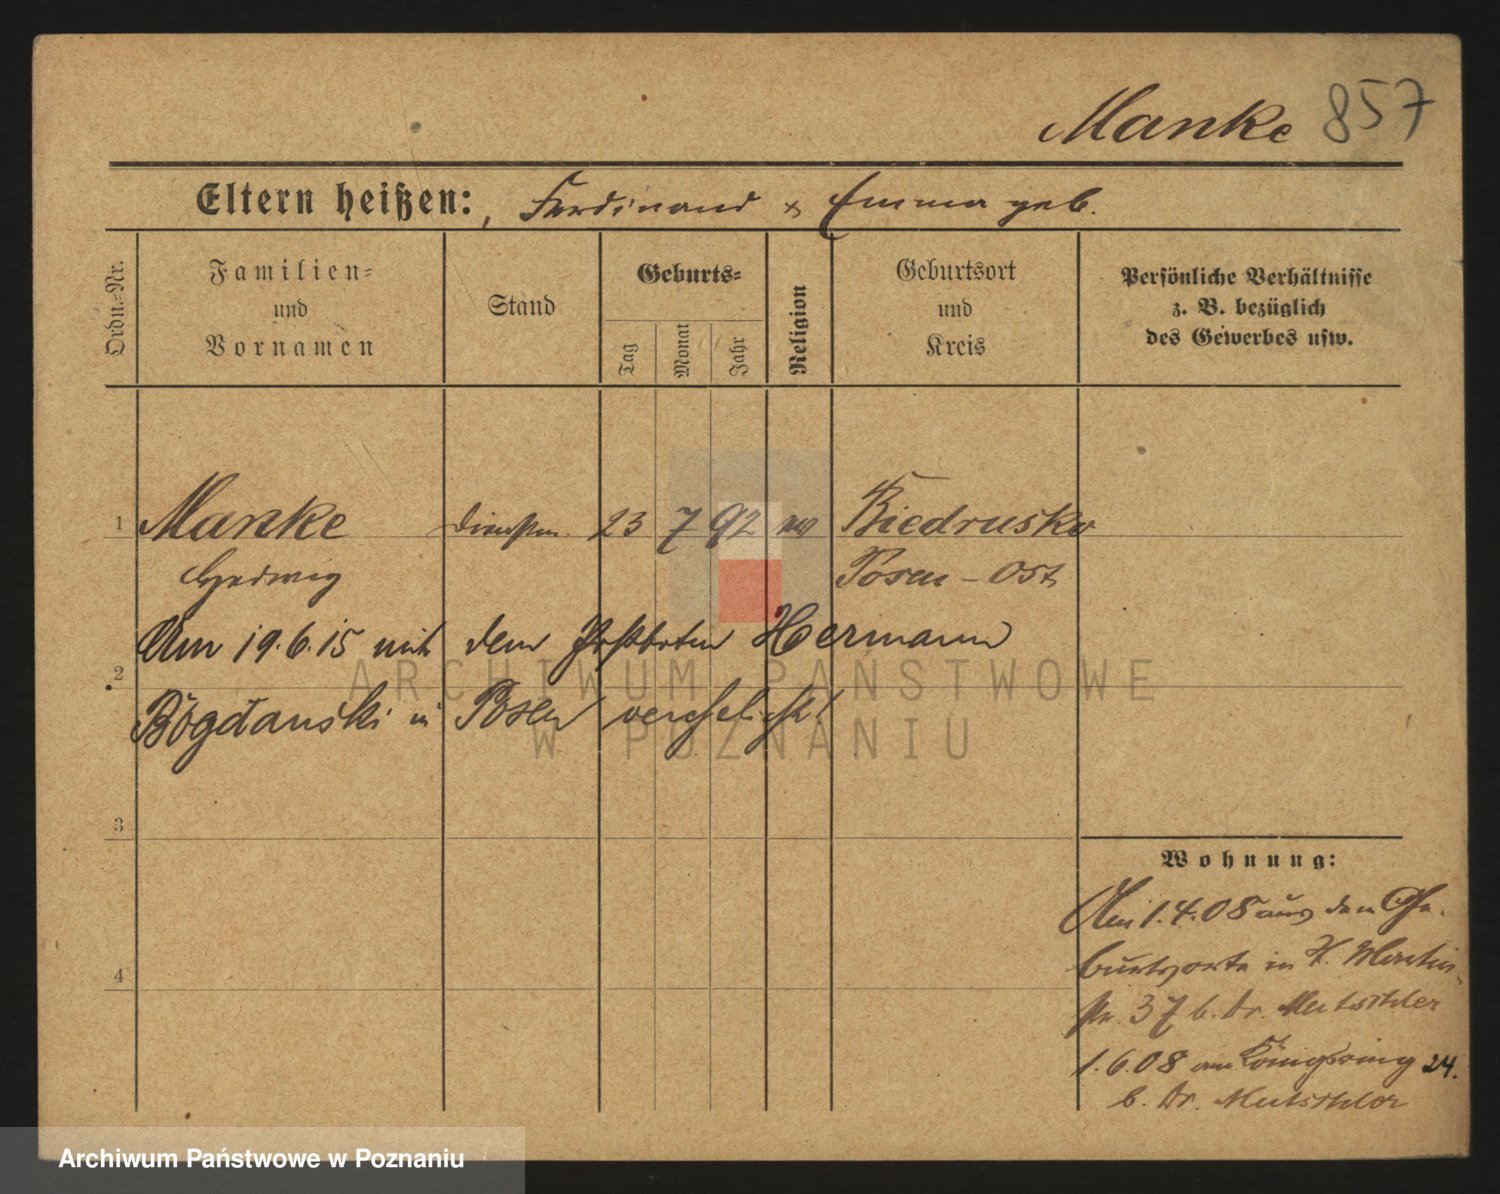 Manke 857
Eltern heißen: Ferdinand & Emma geb.
Ordn.-Nr.
Familien-
und
Vornamen
Stand
Geburts-
Tag
Monat
Jahr
Religion
Geburtsort
und
Kreis
Persönliche Verhältnisse
z. B. bezüglich
des Gewerbes usw.
1 Manke 23 7 92 Biedrusko
Hedwig Posen-Ost
Am 19.6.15 mit dem Postboten Hermann
2
Bogdanski in Posen verehelicht!
3
4
Wohnung:
Am 1.4.08 aus dem Ge-
burtsorte in St. Martin-
str. 37 b. Dr. Mutschler
1.6.08 am Königsring 24.
b. Dr. Mutschler
ARCHIWUM PAŃSTWOWE
W POZNANIU
Archiwum Państwowe w Poznaniu